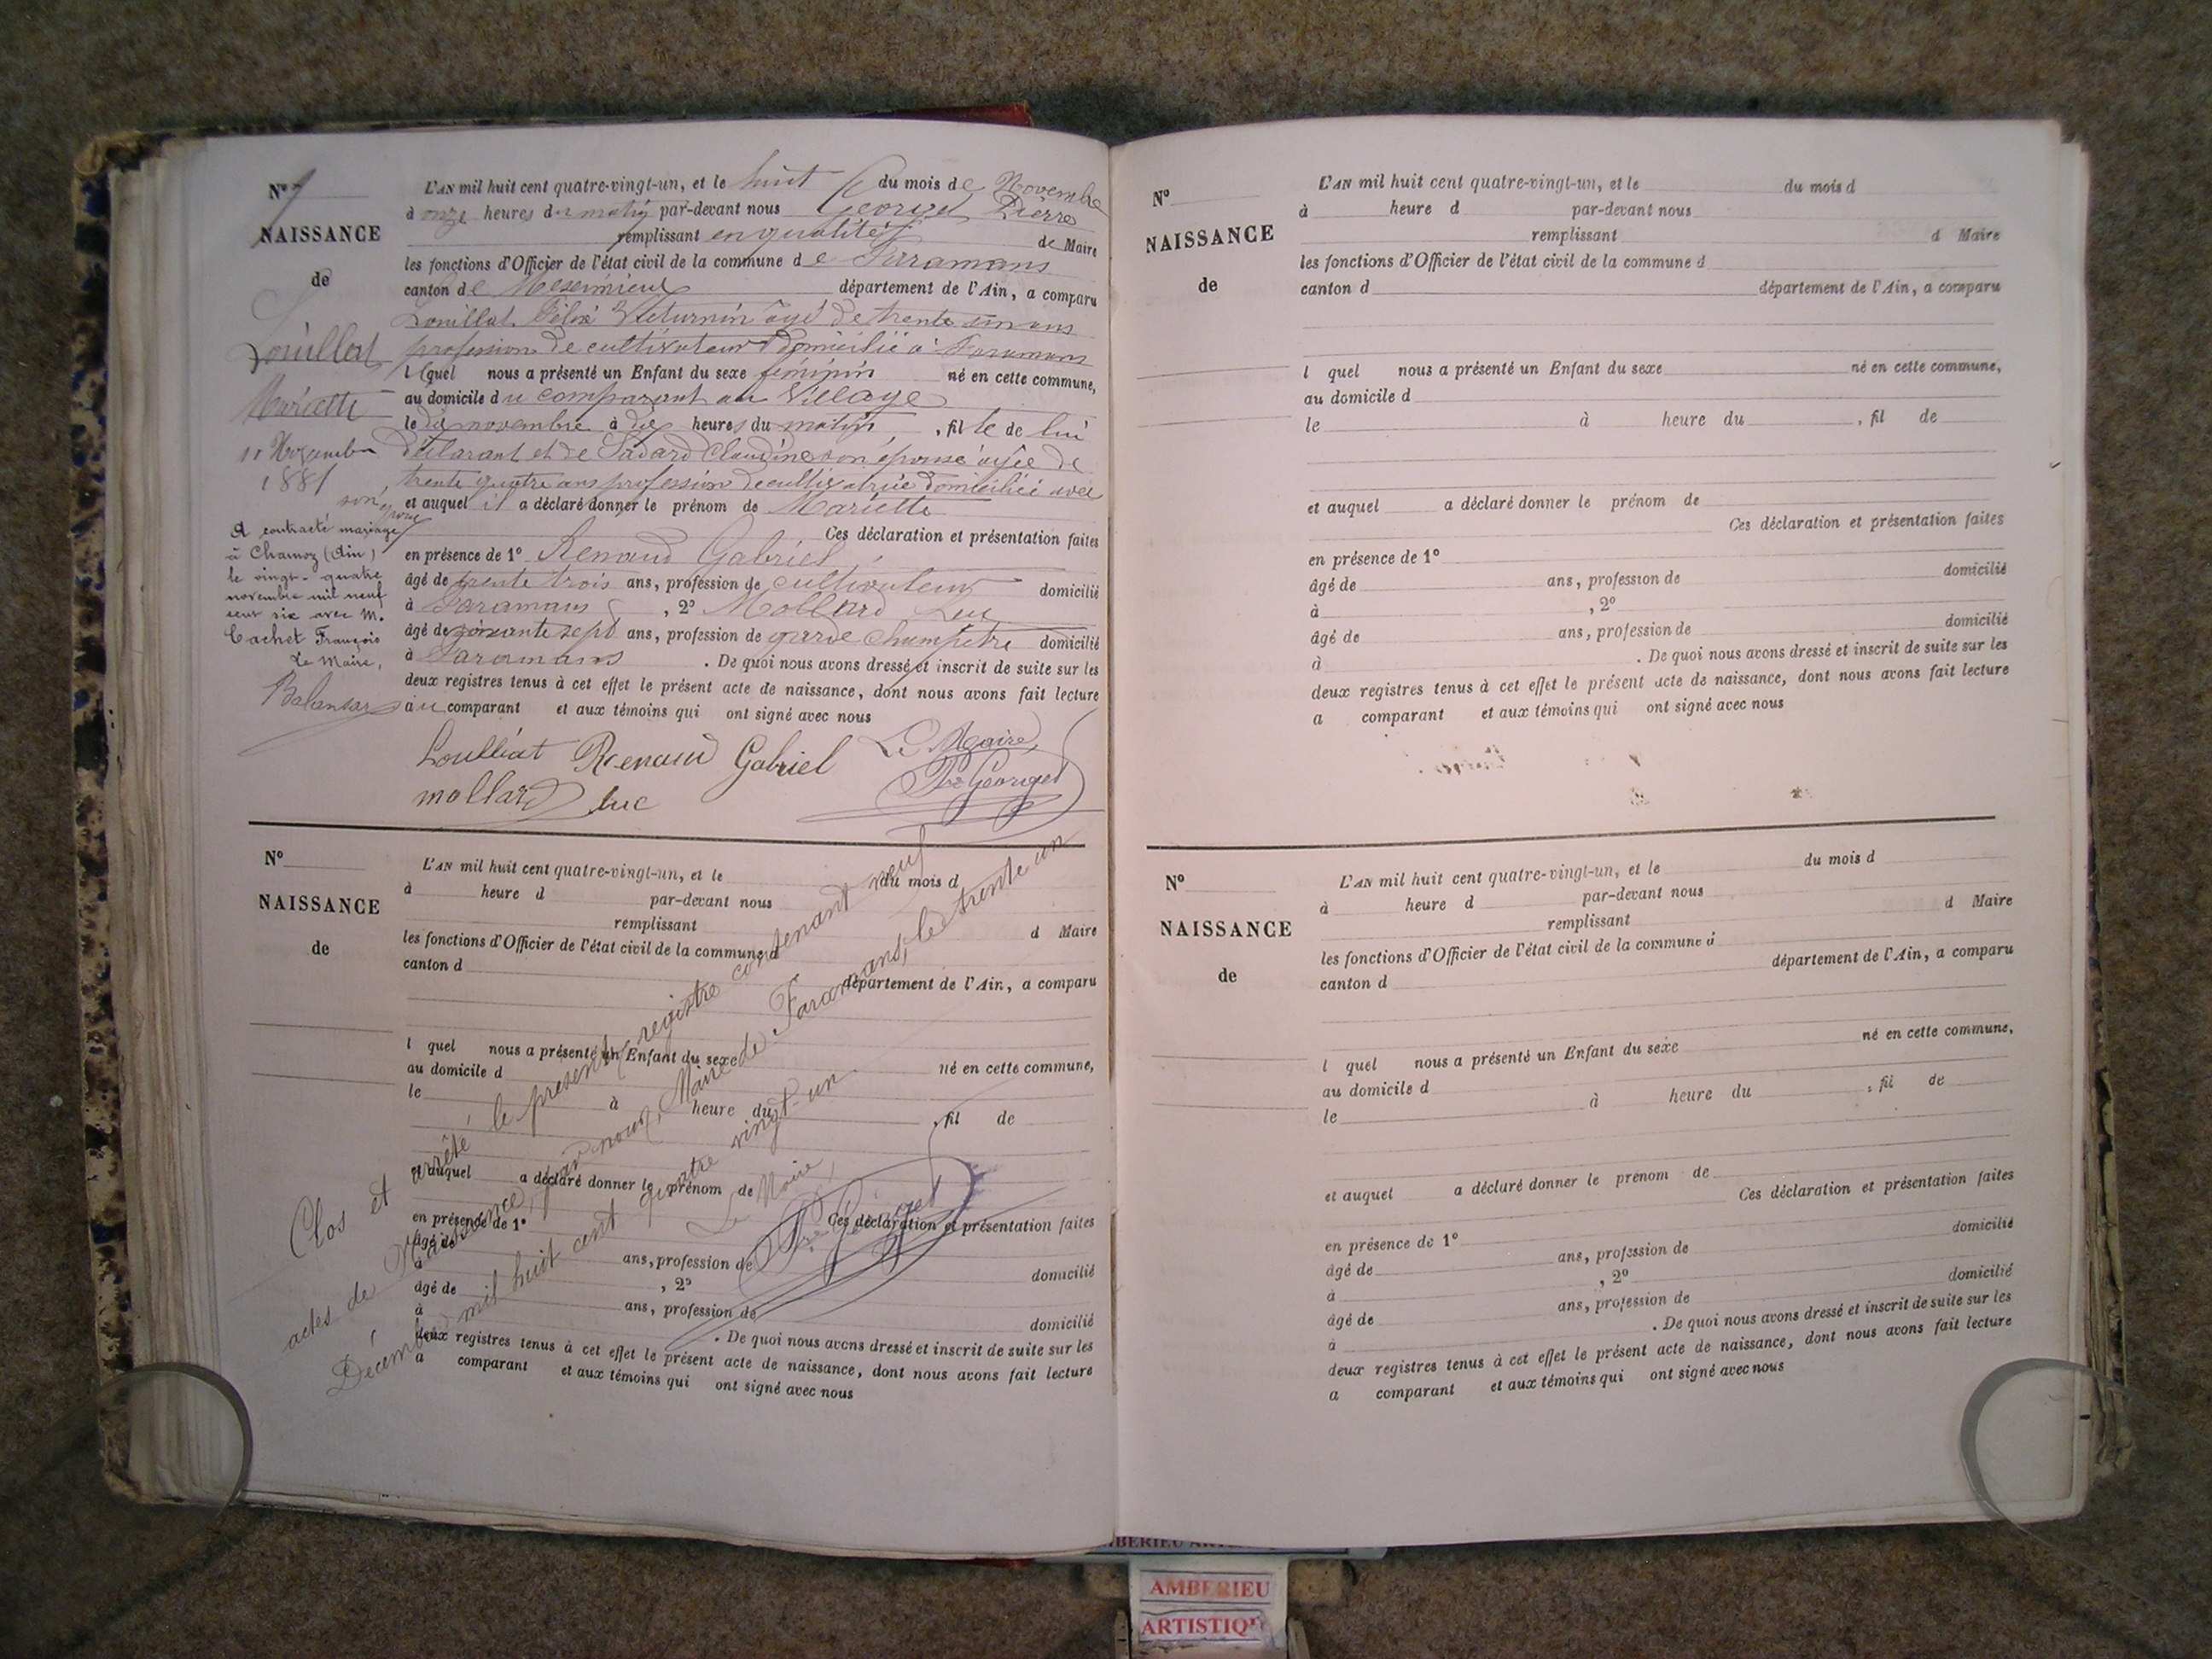 N°
NAISSANCE
de
Louillat
Mariette
11 Novembre
1881
A contracté mariage
à Chanoz (Ain)
le vingt-quatre
novembre mil neuf
cent six avec M.
Cachet François
Le Maire,
L'AN mil huit cent quatre-vingt-un, et le huit du mois de Novembre
à onze heures du matin par-devant nous Georget Pierre
remplissant en qualité de Maire
les fonctions d'Officier de l'état civil de la commune de Faramans
canton de Meximieux département de l'Ain, a comparu
Louillat Félix âgé de trente un ans
profession de cultivateur domicilié à Faramans
lequel nous a présenté un Enfant du sexe féminin né en cette commune,
au domicile du comparant au Village
le dix novembre à dix heures du matin, fille de lui
déclarant et de Sadard Claudine son épouse âgée de
trente quatre ans profession de cultivatrice domiciliée avec
son époux
et auquel il a déclaré donner le prénom de Mariette
Ces déclaration et présentation faites
en présence de 1° Renaud Gabriel
âgé de trente trois ans, profession de cultivateur domicilié
à Faramans, 2° Mollard Luc
âgé de soixante sept ans, profession de garde champêtre domicilié
à Faramans. De quoi nous avons dressé et inscrit de suite sur les
deux registres tenus à cet effet le présent acte de naissance, dont nous avons fait lecture
au comparant et aux témoins qui ont signé avec nous
Renaud Gabriel Le Maire,
mollard luc Georget
N°
NAISSANCE
de
L'AN mil huit cent quatre-vingt-un, et le du mois d
à heure d par-devant nous
remplissant d Maire
les fonctions d'Officier de l'état civil de la commune d
canton d département de l'Ain, a comparu
l quel nous a présenté un Enfant du sexe né en cette commune,
au domicile d
le à heure du , fil de
et auquel a déclaré donner le prénom de
Ces déclaration et présentation faites
en présence de 1°
âgé de ans, profession de domicilié
à , 2°
âgé de ans, profession de domicilié
à . De quoi nous avons dressé et inscrit de suite sur les
deux registres tenus à cet effet le présent acte de naissance, dont nous avons fait lecture
a comparant et aux témoins qui ont signé avec nous
Clos et arrêté le présent registre contenant neuf
actes de Naissance, par nous, Maire de Faramans, le trente un
Décembre mil huit cent quatre vingt-un
Le Maire,
Georget
N°
NAISSANCE
de
L'AN mil huit cent quatre-vingt-un, et le du mois d
à heure d par-devant nous
remplissant d Maire
les fonctions d'Officier de l'état civil de la commune d
canton d département de l'Ain, a comparu
l quel nous a présenté un Enfant du sexe né en cette commune,
au domicile d
le à heure du , fil de
et auquel a déclaré donner le prénom de
Ces déclaration et présentation faites
en présence de 1°
âgé de ans, profession de domicilié
à , 2°
âgé de ans, profession de domicilié
à . De quoi nous avons dressé et inscrit de suite sur les
deux registres tenus à cet effet le présent acte de naissance, dont nous avons fait lecture
a comparant et aux témoins qui ont signé avec nous
N°
NAISSANCE
de
L'AN mil huit cent quatre-vingt-un, et le du mois d
à heure d par-devant nous
remplissant d Maire
les fonctions d'Officier de l'état civil de la commune d
canton d département de l'Ain, a comparu
l quel nous a présenté un Enfant du sexe né en cette commune,
au domicile d
le à heure du , fil de
et auquel a déclaré donner le prénom de
Ces déclaration et présentation faites
en présence de 1°
âgé de ans, profession de domicilié
à , 2°
âgé de ans, profession de domicilié
à . De quoi nous avons dressé et inscrit de suite sur les
deux registres tenus à cet effet le présent acte de naissance, dont nous avons fait lecture
a comparant et aux témoins qui ont signé avec nous
AMBERIEU
ARTISTIQU